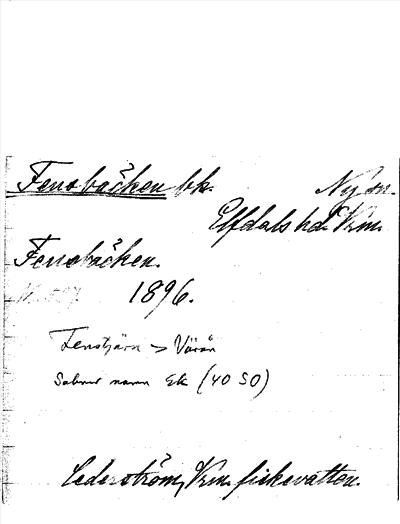 Fensbäcken bk. Ny sn.
Elfdals hd. Vrm.
Fensbäcken.
1896.
Fenstjärn -> Värån
Saknar namn Ek (40 SO)
Cederström, Vrm. fiskevatten.